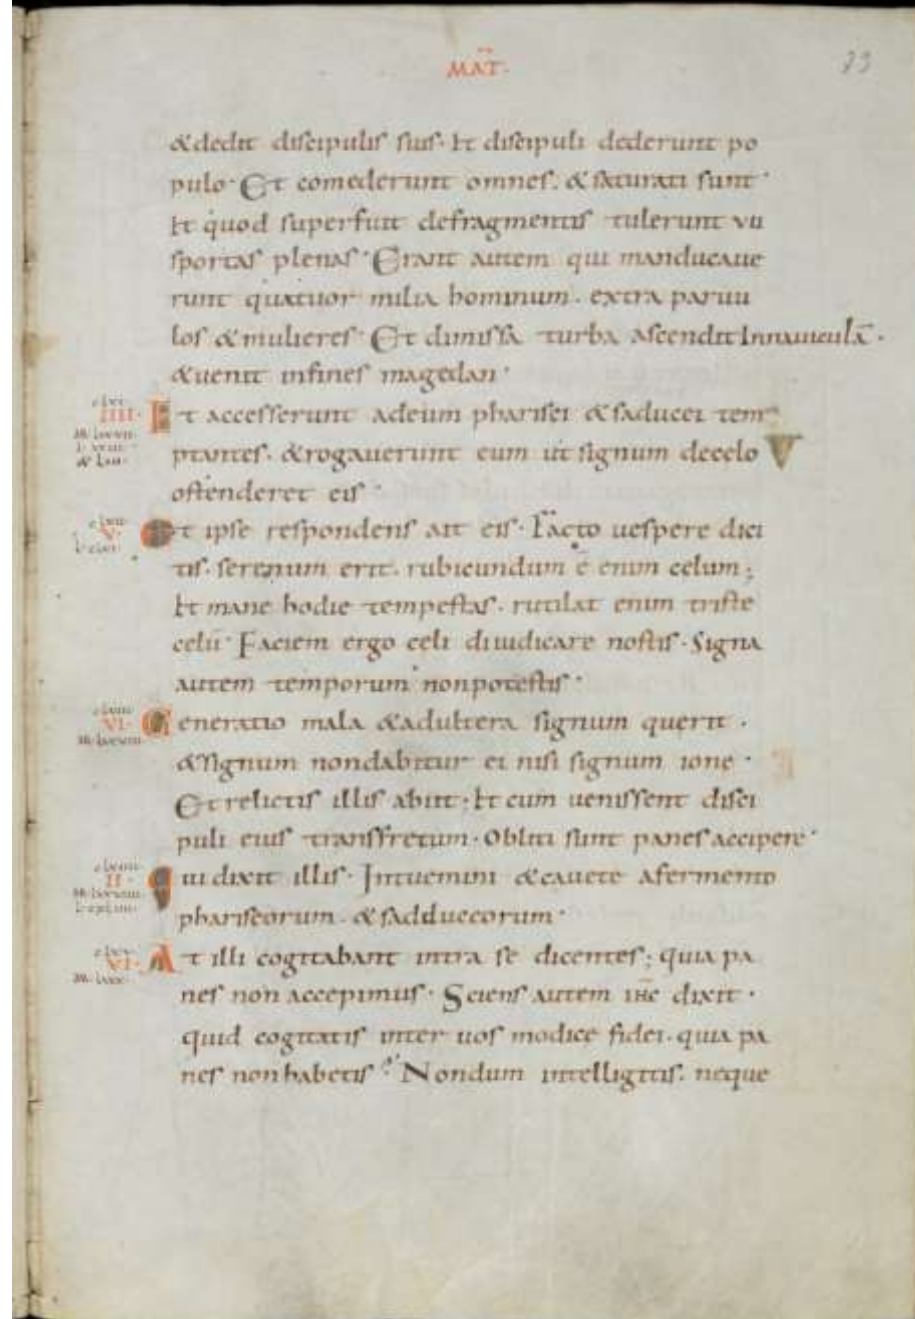 MAT·
&dedit discipulis suis· Et discipuli dederunt po
pulo· Et comederunt omnes· & saturati sunt·
Et quod superfuit defragmentis tulerunt vii
sportas plenas· Erant autem qui manducaue
runt quatuor milia hominum· extra paruu
los & mulieres· Et dimissa turba ascendit Innauiculā·
& uenit infines magedan·
IIII·
Et accesserunt adeum pharisei & saducei tem
ptantes· & rogauerunt eum ut signum decelo
V
ostenderet eis·
V·
Et ipse respondens ait eis· Facto uespere dici
tis· serenum erit· rubicundum ē enim celum;
Et mane hodie tempestas· rutilat enim triste
celū· Faciem ergo celi diiudicare nostis· Signa
autem temporum nonpotestis·
VI·
Generatio mala & adultera signum querit·
& signum nondabitur ei nisi signum ione·
Et relictis illis abiit; Et cum uenissent disci
puli eius transfretum· Obliti sunt panes accipere·
II·
Qui dixit illis· Intuemini & cauete afermento
phariseorum· & sadduceorum·
VI·
At illi cogitabant intra se dicentes; quia pa
nes non accepimus· Sciens autem ihc dixit·
quid cogitatis inter uos modice fidei· quia pa
nes non habetis? Nondum intelligitis· neque